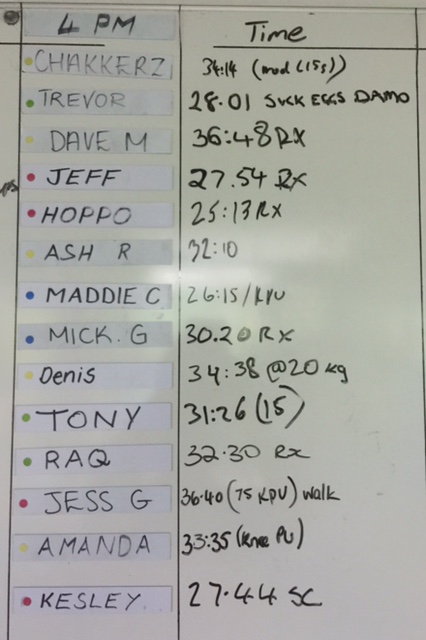 4 PM Time
CHAKKERZ 34:14 (mod (15s))
TREVOR 28.01 SUCK EGGS DAMO
DAVE M 36:48 RX
JEFF 27.54 RX
HOPPO 25:13 RX
ASH R 32:10
MADDIE C 26:15/KPU
MICK. G 30.20 RX
Denis 34:38 @20 kg
TONY 31:26 (15)
RAQ 32.30 Rx
JESS G 36.40 (75 KPU) walk
AMANDA 33:35 (knee PU)
KESLEY. 27.44 SC